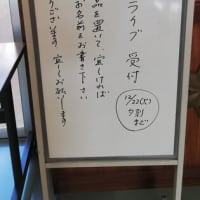 ライブ 受付
12/22(火)
夕刻
まで
品を置いて、宜しければ
お名前をお書き下さい
うございます 宜しくお願いします